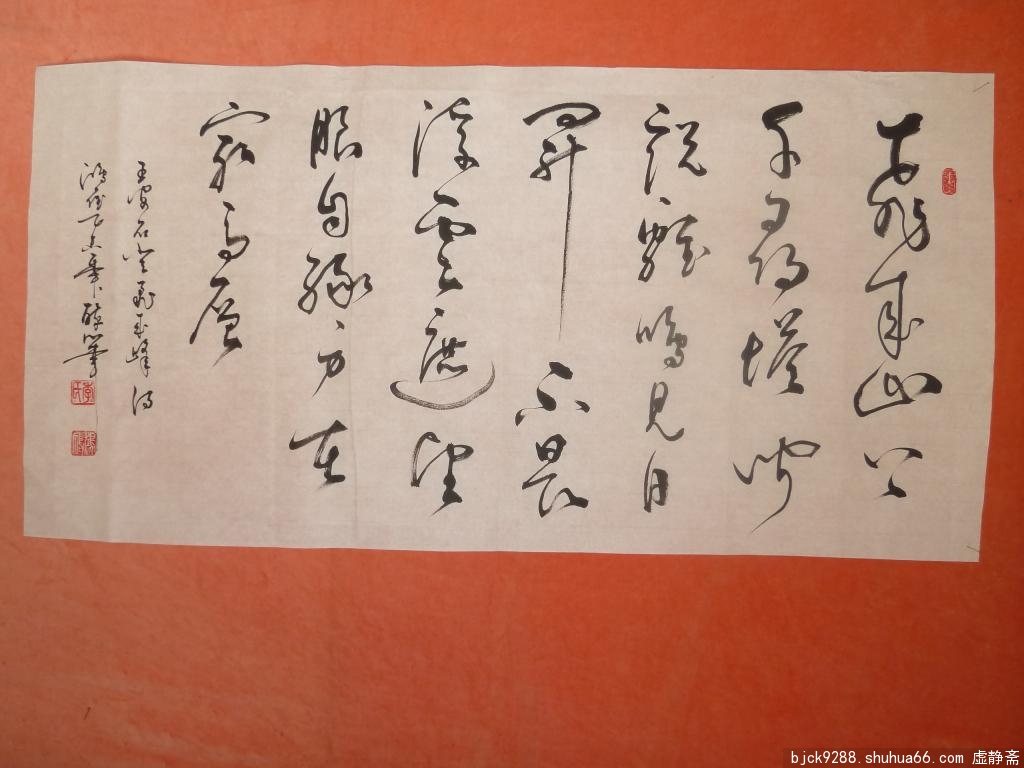 飛来山上
千尋塔聞
説雞鳴見日
昇不畏
浮雲遮望
眼自緣身在
最高層
王安石登飛来峰詩
醉筆
bjck9288.shuhua66.com 虚静斋